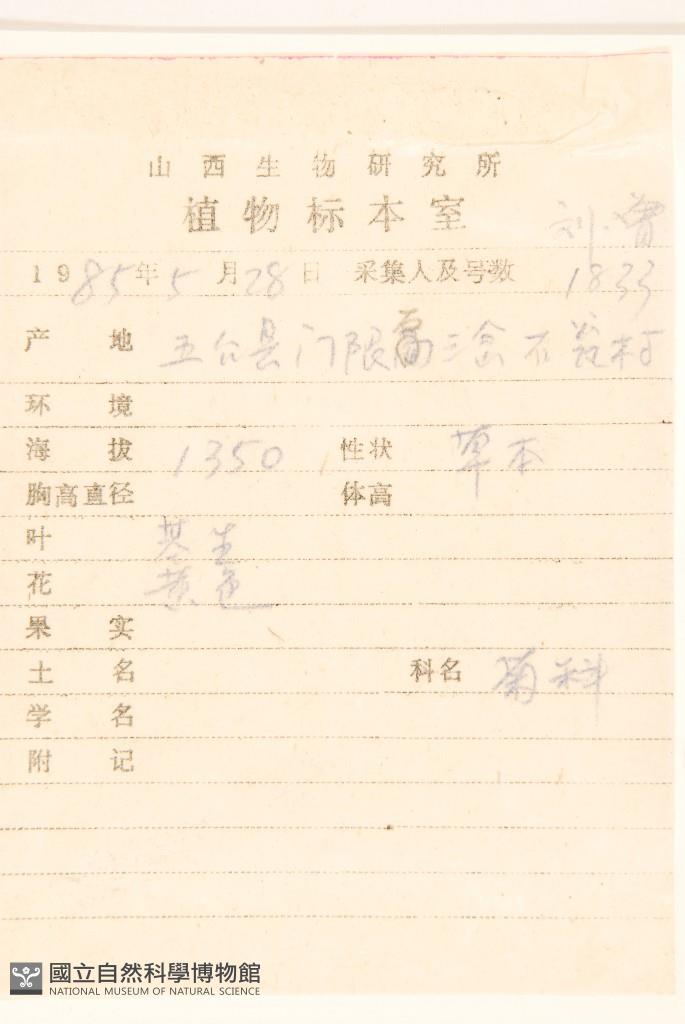 山西生物研究所
植物标本室
刘 曾
1985年5月28日 采集人及号数 1833
产地 五台县门限 三岔石 村
环境
海拔 1350 性状 草本
胸高直径 体高
叶 基生
花 黄色
果实
土名 科名 菊科
学名
附记
國立自然科學博物館
NATIONAL MUSEUM OF NATURAL SCIENCE